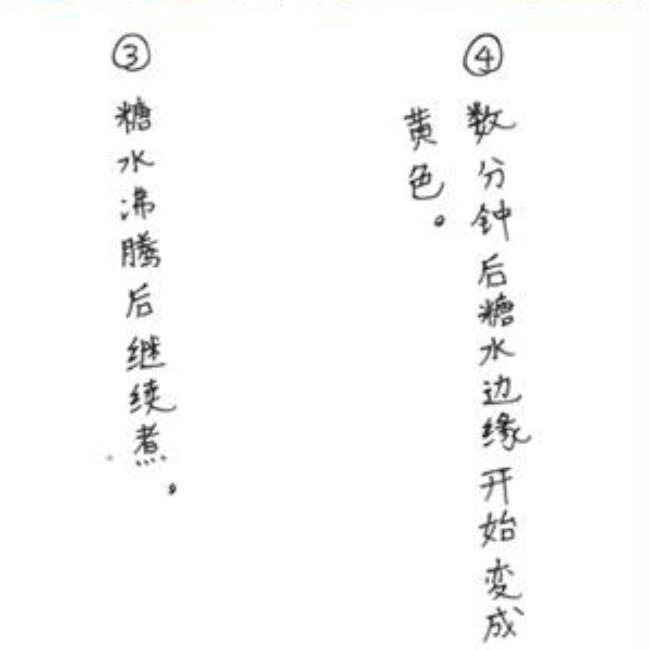 ③
糖水沸腾后继续煮。
④
数分钟后糖水边缘开始变成
黄色。